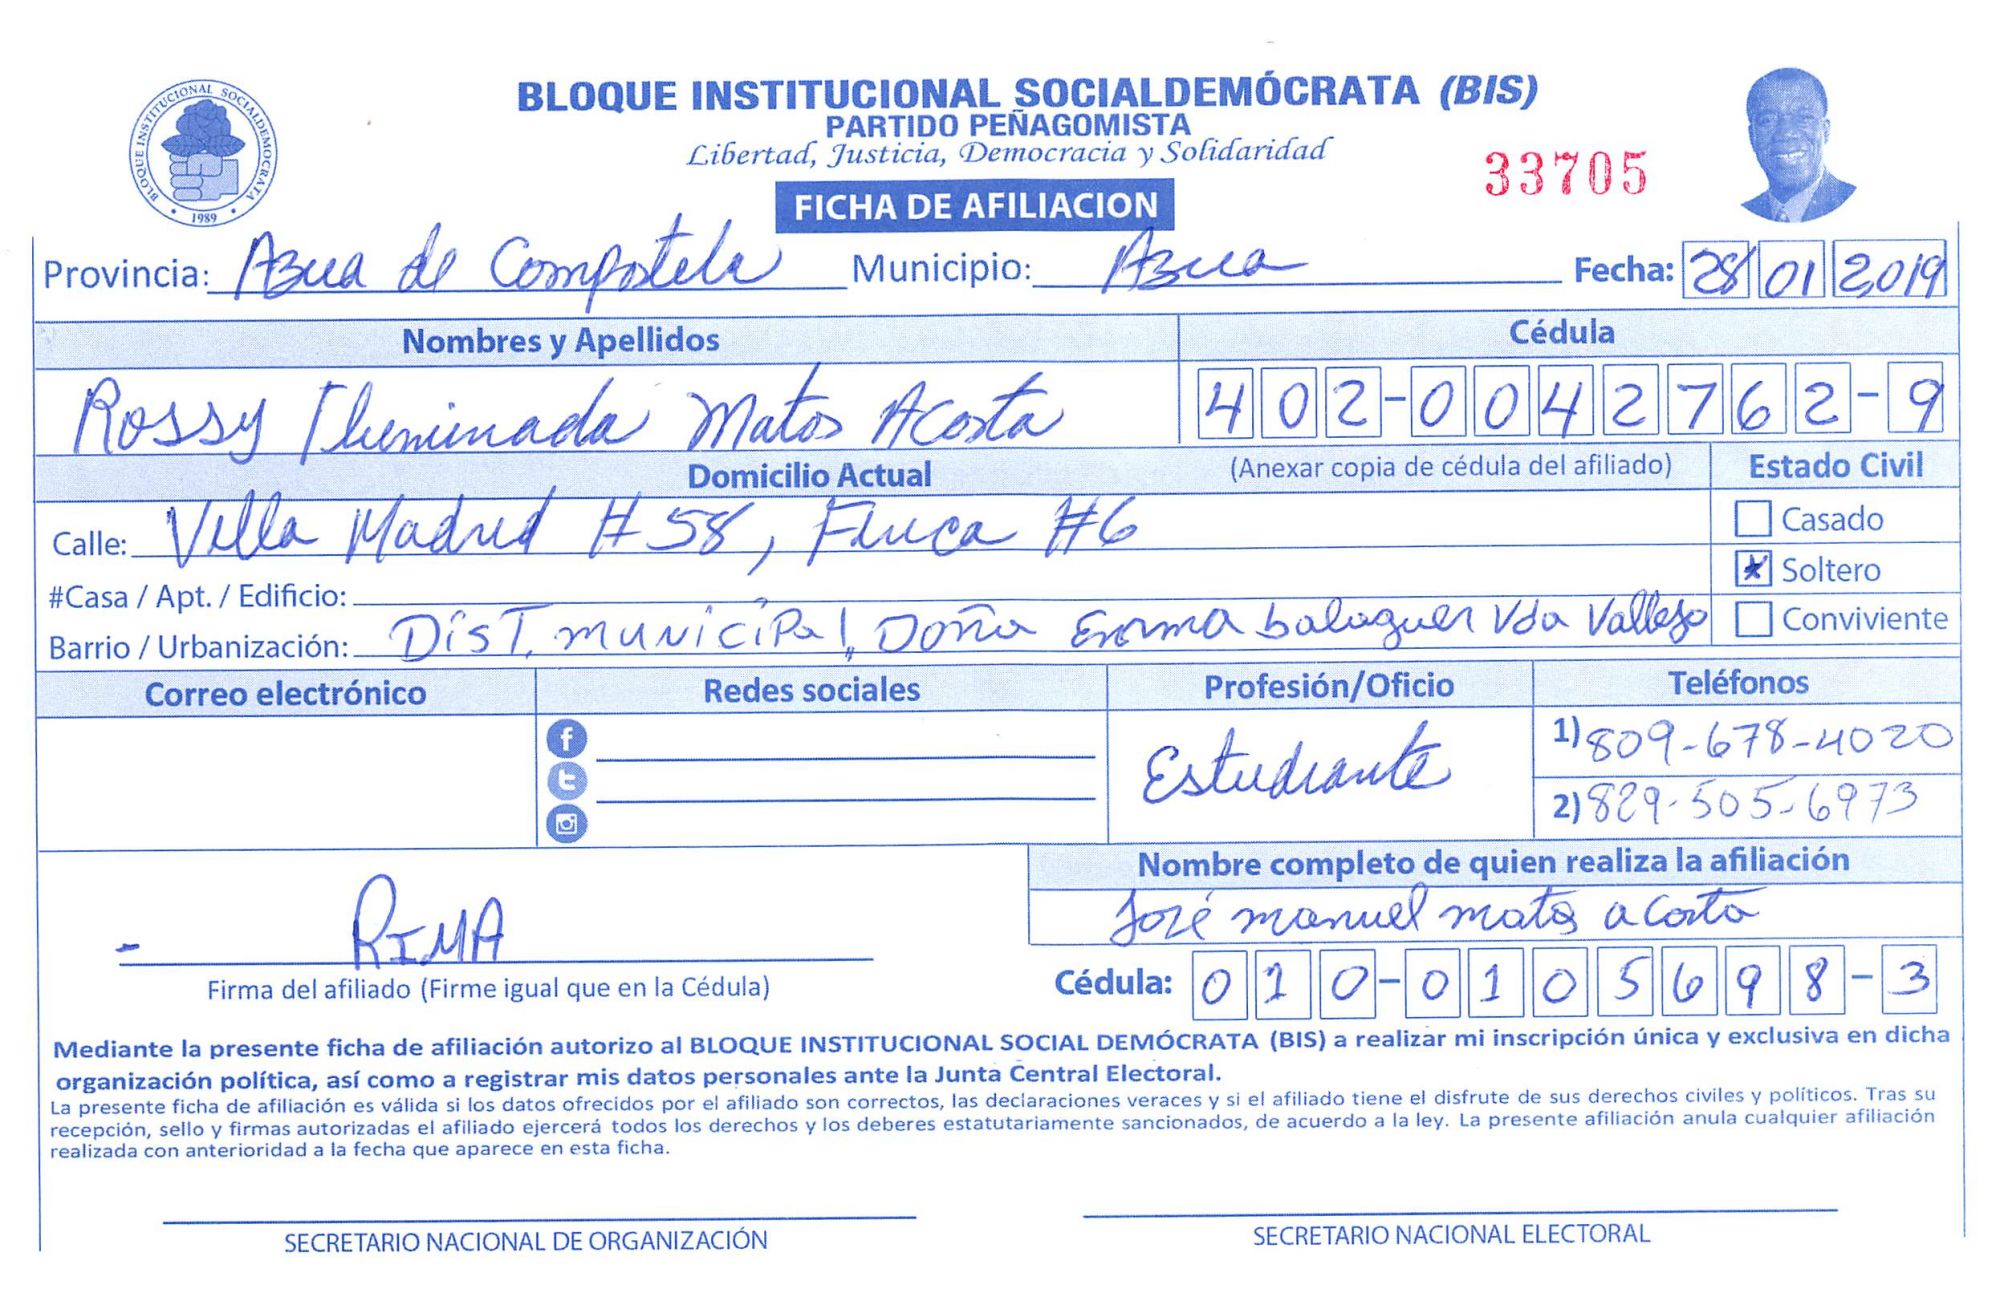 BLOQUE INSTITUCIONAL SOCIALDEMOCRATA
1989
BLOQUE INSTITUCIONAL SOCIALDEMÓCRATA (BIS)
PARTIDO PEÑAGOMISTA
Libertad, Justicia, Democracia y Solidaridad
33705
FICHA DE AFILIACION
Provincia: Azua de Compostela Municipio: Azua Fecha: 28 01 2019
Nombres y Apellidos Cédula
Rossy Iluminada Matos Acosta 402-0042762-9
Domicilio Actual (Anexar copia de cédula del afiliado) Estado Civil
Calle: Villa Madrid #58, Finca #6 Casado
#Casa / Apt. / Edificio: Soltero
Barrio / Urbanización: Dist. municipal, Doña Emma balaguer Vda Vallejo Conviviente
Correo electrónico Redes sociales Profesión/Oficio Teléfonos
Estudiante 1) 809-678-4020
2) 829-505-6973
Nombre completo de quien realiza la afiliación
José manuel matos acosta
RIMA
Firma del afiliado (Firme igual que en la Cédula) Cédula: 010-0105698-3
Mediante la presente ficha de afiliación autorizo al BLOQUE INSTITUCIONAL SOCIAL DEMÓCRATA (BIS) a realizar mi inscripción única y exclusiva en dicha
organización política, así como a registrar mis datos personales ante la Junta Central Electoral.
La presente ficha de afiliación es válida si los datos ofrecidos por el afiliado son correctos, las declaraciones veraces y si el afiliado tiene el disfrute de sus derechos civiles y políticos. Tras su
recepción, sello y firmas autorizadas el afiliado ejercerá todos los derechos y los deberes estatutariamente sancionados, de acuerdo a la ley. La presente afiliación anula cualquier afiliación
realizada con anterioridad a la fecha que aparece en esta ficha.
SECRETARIO NACIONAL DE ORGANIZACIÓN SECRETARIO NACIONAL ELECTORAL